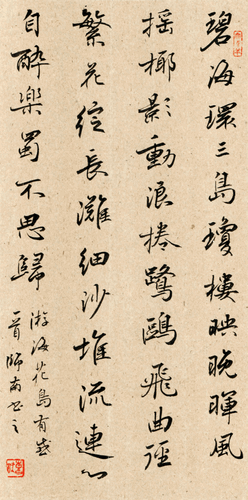 碧海環三島瓊樓映晚暉風
搖椰影動浪捲鷺鷗飛曲徑
繁花綻長灘細沙堆流連心
自醉樂蜀不思歸
游海花島有感
一首師南书之